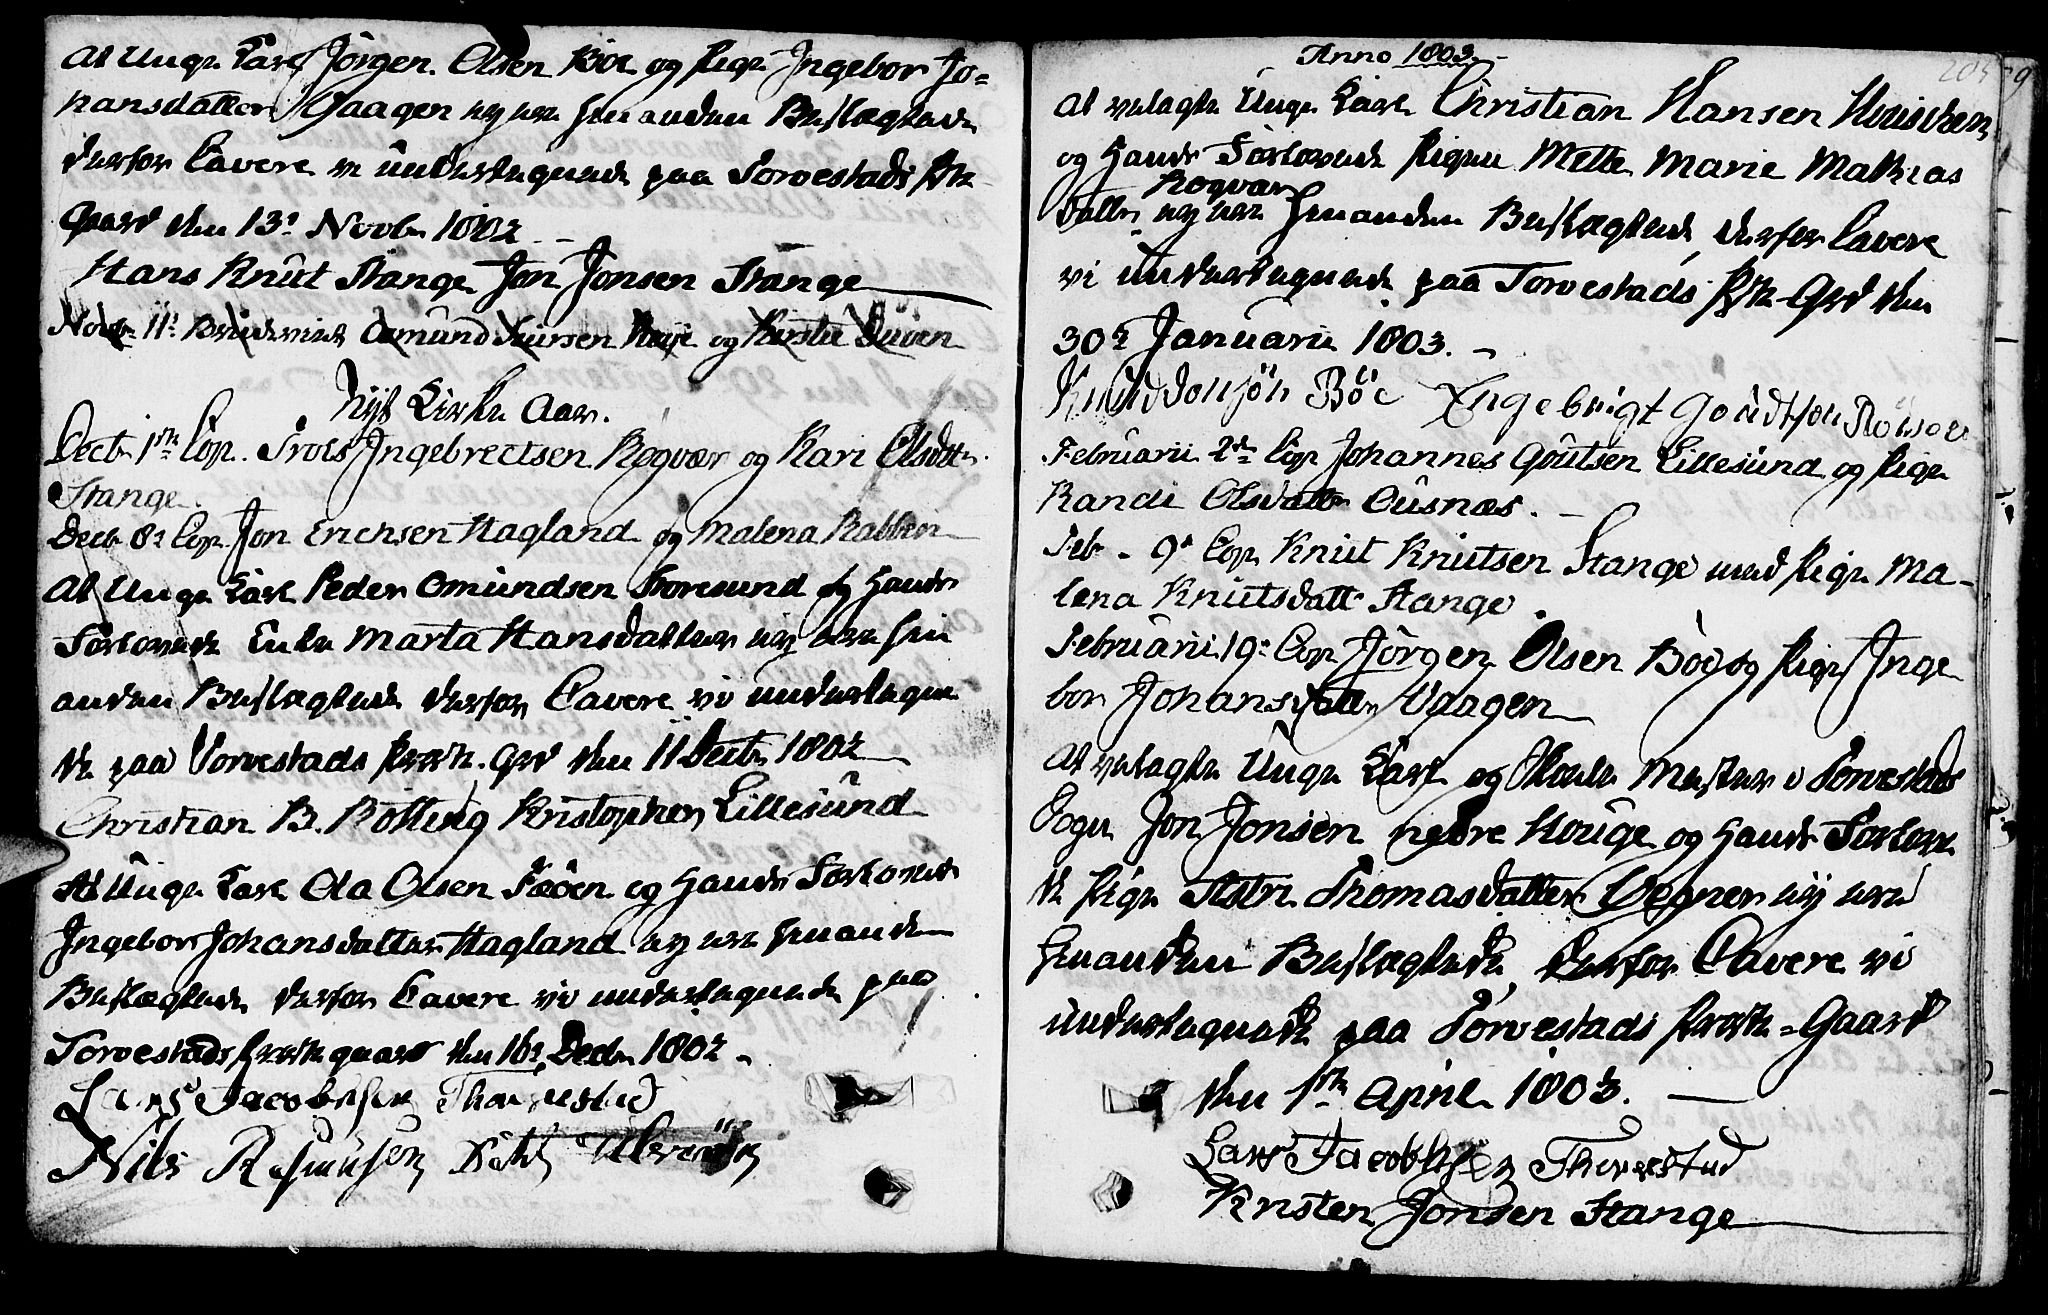 At Unge Karl Jörgen Olsen Böe og Pige Ingebor Jo-
hansdatter Vaagen ey ere hinanden Beslægtede
derfor Cavere vi underteguede paa Torvestads Præste
Gaard den 13de Novbr 1802 -
Hans Knut Stange Jon Jonsen Stange
Novbr 11te Brudeviet Osmund Siursen Høije og Kirstie Duöen
Nyt Kirke Aar.
Decbr 1ste Cop. Trols Ingebrectsen Rogvær og Kari Olsdatter
Stange
Decbr 8de Cop. Jon Erichsen Hagland og Malena Kalben
At Unge Karl Peder Omundsen Storesund og Hands
Forlovede Enke Marta Hansdatter ey ere hin
anden Beslægtede derfor Cavere vi undertegne
de paa Torvestads Præste Grd den 11 Decbr 1802
Christian B. Rötting Kristopher Lillesund
At Unge Karl Ola Olsen Fæöen og Hands Forlovede
Ingebor Johansdatter Hagland ey ere hinanden
Beslægtede derfor Cavere vi undertegnede paa
Torvestads Præstegaard den 16de Decbr 1802 -
Lars Jacobsen Thorvestad
Nils Rasmusen
Anno 1803 -
At velagte Unge Karl Christian Hansen
og Hands Forlovede Pigen Mette Marie Mathias
Rogvær
datter ey ere hinanden Beslægtede, derfor Cavere
vi undertegnede paa Torvestads Præste Grd den
30de Januarii 1803. -
Knud Jonsön Böe Engebrigt Goudtson
Februarii 2den Cop Johannes Goutsen Lillesund og Pige
Randi Olsdatter Ousnæs. -
Feb - 9de Cop Knut Knutsen Stange med Pige Ma-
lena Knutsdatt Stange.
Februarii 19de Cop Jörgen Olsen Böe og Pige Inge
bor Johansdatter Vaagen
At velagte Unge Karl og Skole Mester i Torvestads
Sogn Jon Jonsen nedre Houge og Hands Forlove
de Pige Astri Thomasdatter Vegner ey ere
hinanden Beslægtede, derfor Cavere vi
undertegnede paa Torvestads Præste-Gaard
den 1ste April 1803. -
Lars Jacobsen Thorvestad
Kristen Jonsen Stange